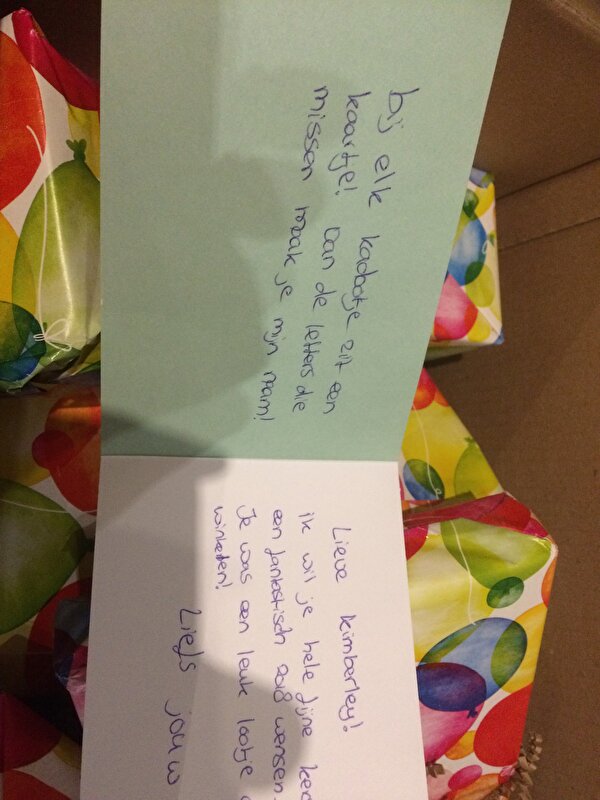 bij elk kadootje zit een
kaartje! Van de letters die
missen maak je mijn naam!
Lieve kimberley!
ik wil je hele fijne kers
een fantastisch 2018 wensen.
Je was een leuk lootje
winkelen!
Liefs jouw